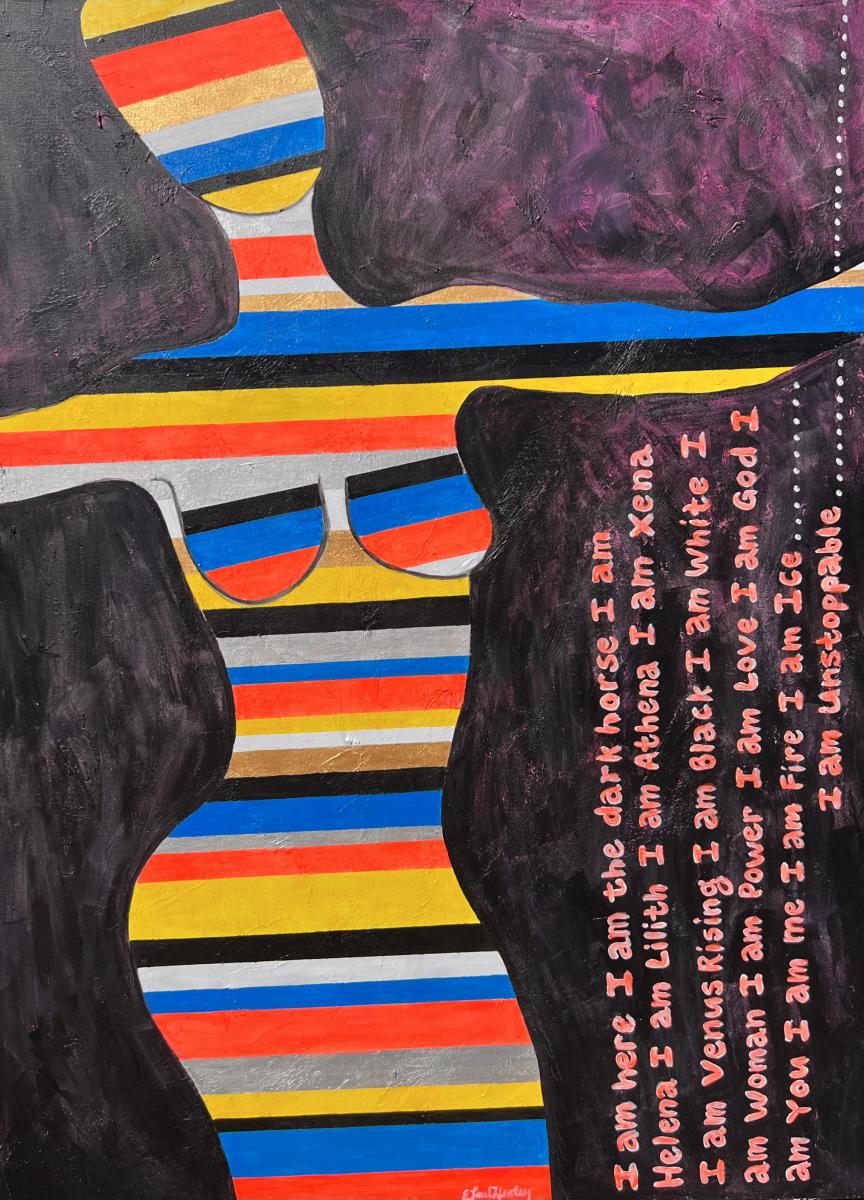 I am here I am the dark horse I am
Helena I am Lilith I am Athena I am Xena
I am Venus Rising I am Black I am White I
am Woman I am Power I am Love I am God I
am You I am me I am Fire I am Ice ........
I am Unstoppable ........